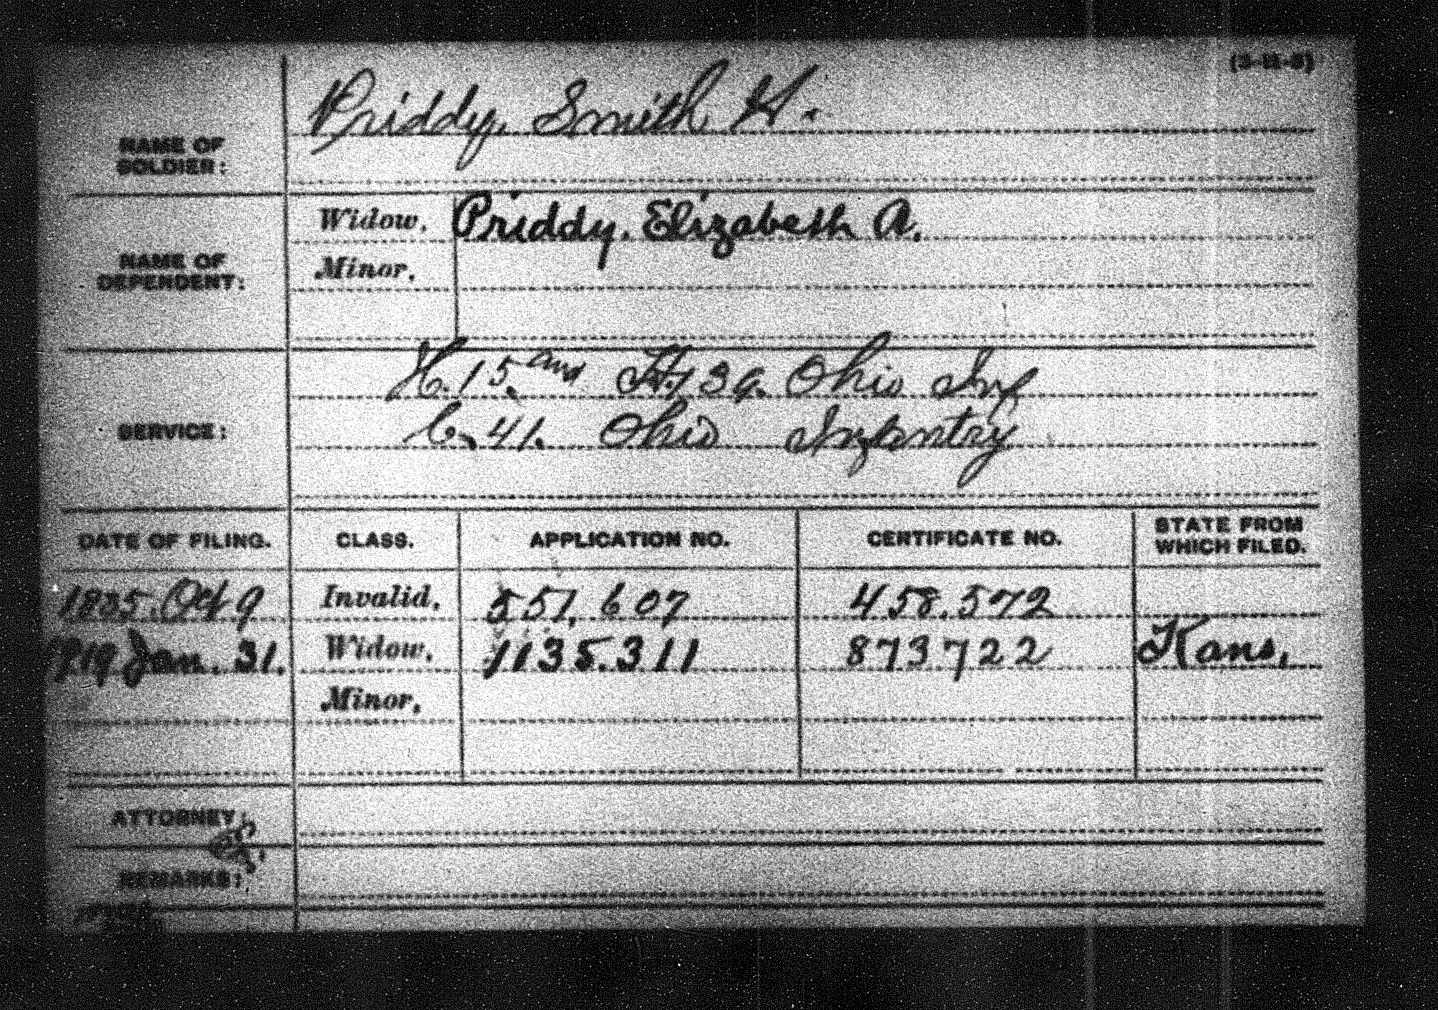 (3-12-8)
Priddy, Smith H.
NAME OF
SOLDIER:
Widow, Priddy, Elizabeth A.
NAME OF
DEPENDENT:
Minor,
H. 15. and H, 39. Ohio Inf
SERVICE:
C. 41. Ohio Infantry
DATE OF FILING. CLASS. APPLICATION NO. CERTIFICATE NO. STATE FROM WHICH FILED.
1885. Oct 9 Invalid, 551,607 458.572
1919 Jan. 31. Widow, 1135.311 873722 Kans.
Minor,
ATTORNEY:
REMARKS: